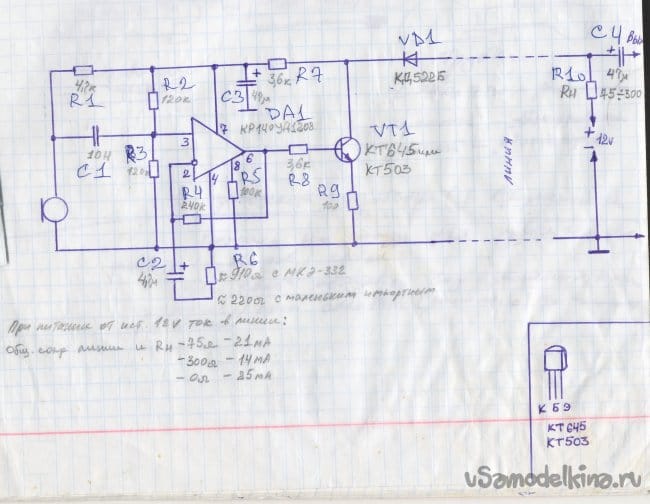 C4
Вых
VD1
47м
4,7к
R1
R2
120к
+
C3
47м
3,6к
R7
КД522Б
R10
Rн
75÷300
DA1
КР140УД1208
7
3
2
6
8
4
VT1
КТ645 или
КТ503
+
12v
-
10н
C1
R3
120к
R4
240к
R5
100к
3,6к
R8
R9
100
линия
C2
+
4,7м
R6
≈ 910Ω с МКЭ-332
≈ 220Ω с маленьким импортным
При питании от ист. 12V ток в линии:
Общ. сопр линии и Rн -75Ω - 21мА
-300Ω - 14мА
-0Ω - 25мА
К Б Э
КТ645
КТ503
vSamodelkina.ru